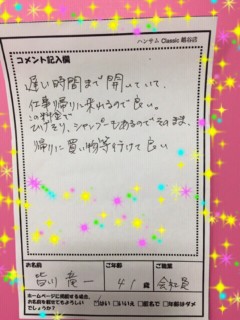 ハンサム Classic 越谷店
コメント記入欄
遅い時間まで開いていて、
仕事帰りに来れるので良い。
この料金で
ひげそり、シャンプーもあるのでそのまま、
帰りに買い物等行けて良い
お名前
ご年齢
ご職業
皆川 竜一
41 歳
会社員
ホームページに掲載する場合、
お名前を載せてもよろしい
でしょうか?
はい いいえ 匿名で 年齢はダメ